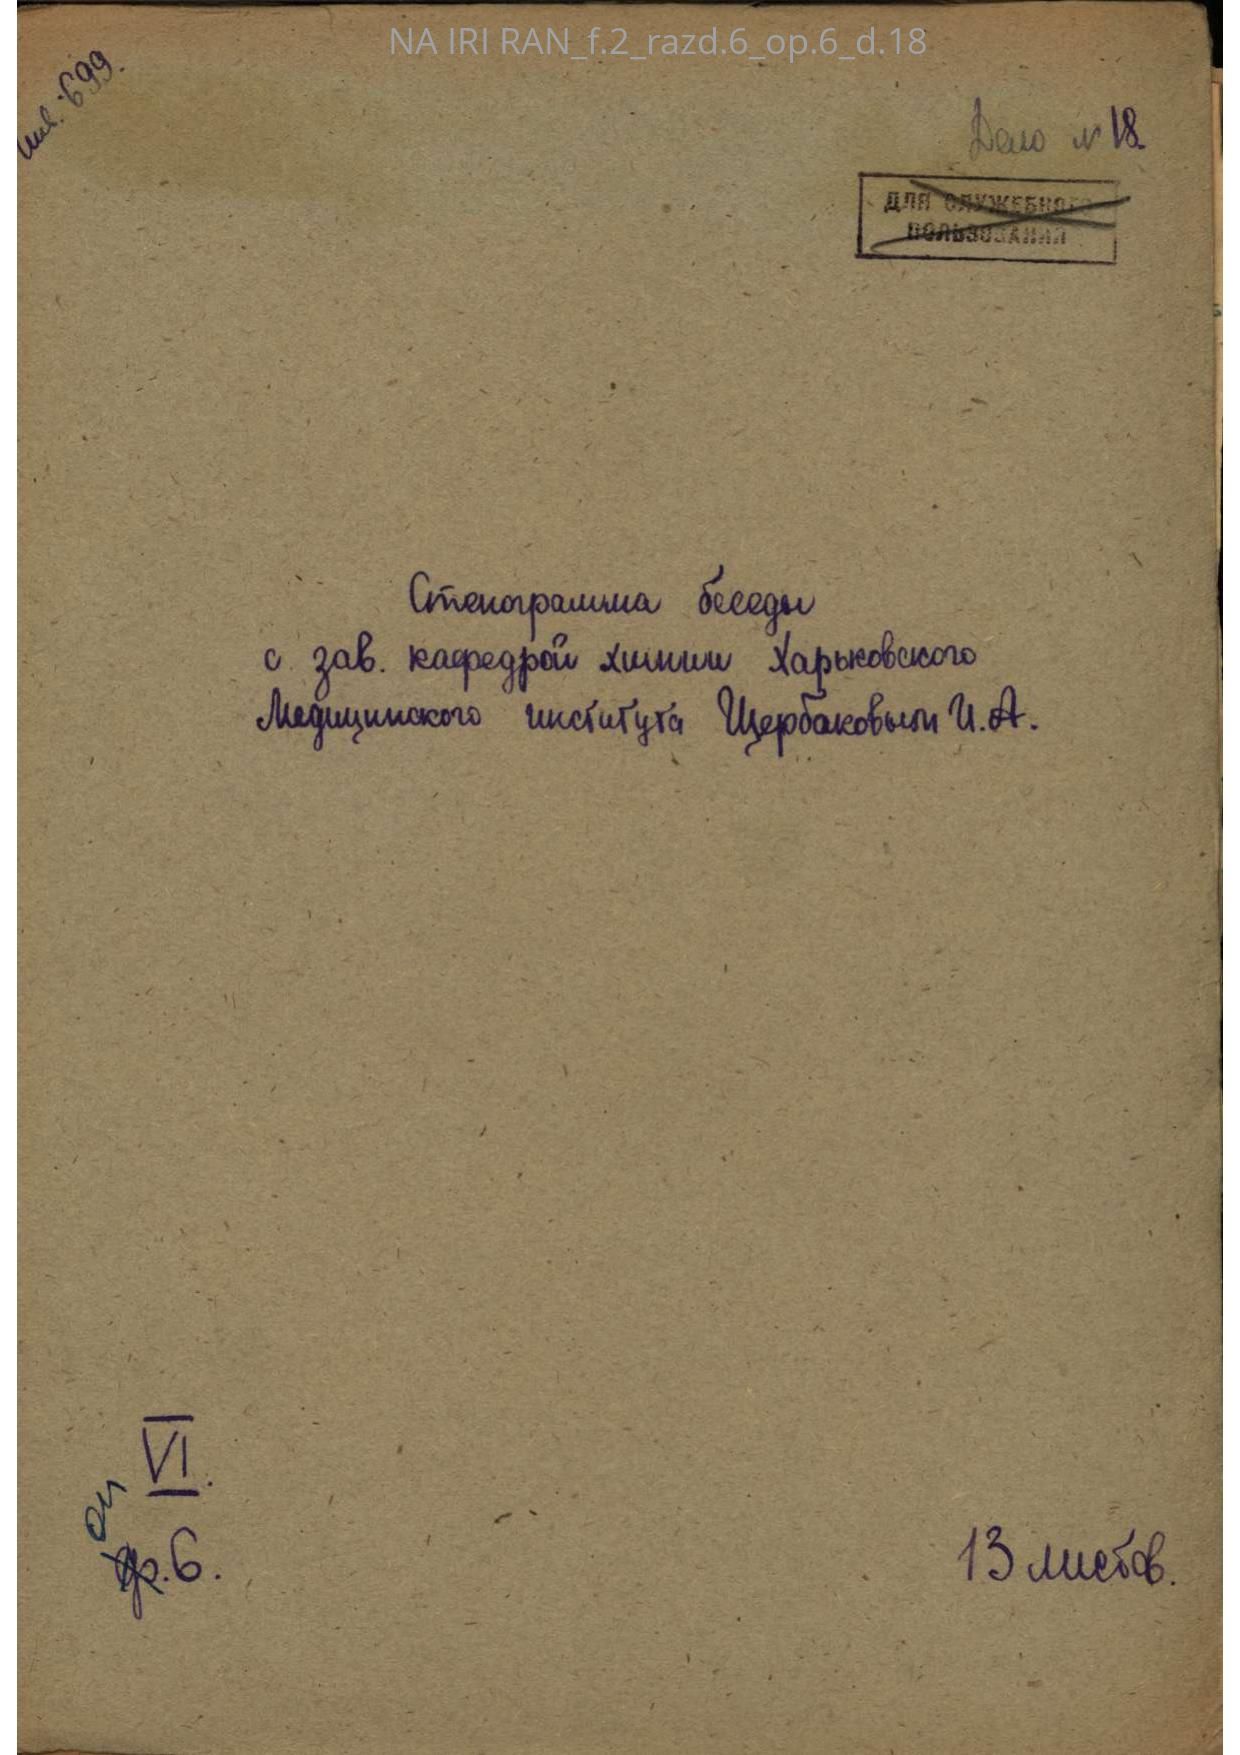 NA IRI RAN_f.2_razd.6_op.6_d.18
инв. 699.
Дело № 18.
ДЛЯ СЛУЖЕБНОГО
ПОЛЬЗОВАНИЯ
Стенограмма беседы
с зав. кафедрой химии Харьковского
Медицинского института Щербаковым И.А.
VI.
оп
ф.6.
13 листов.